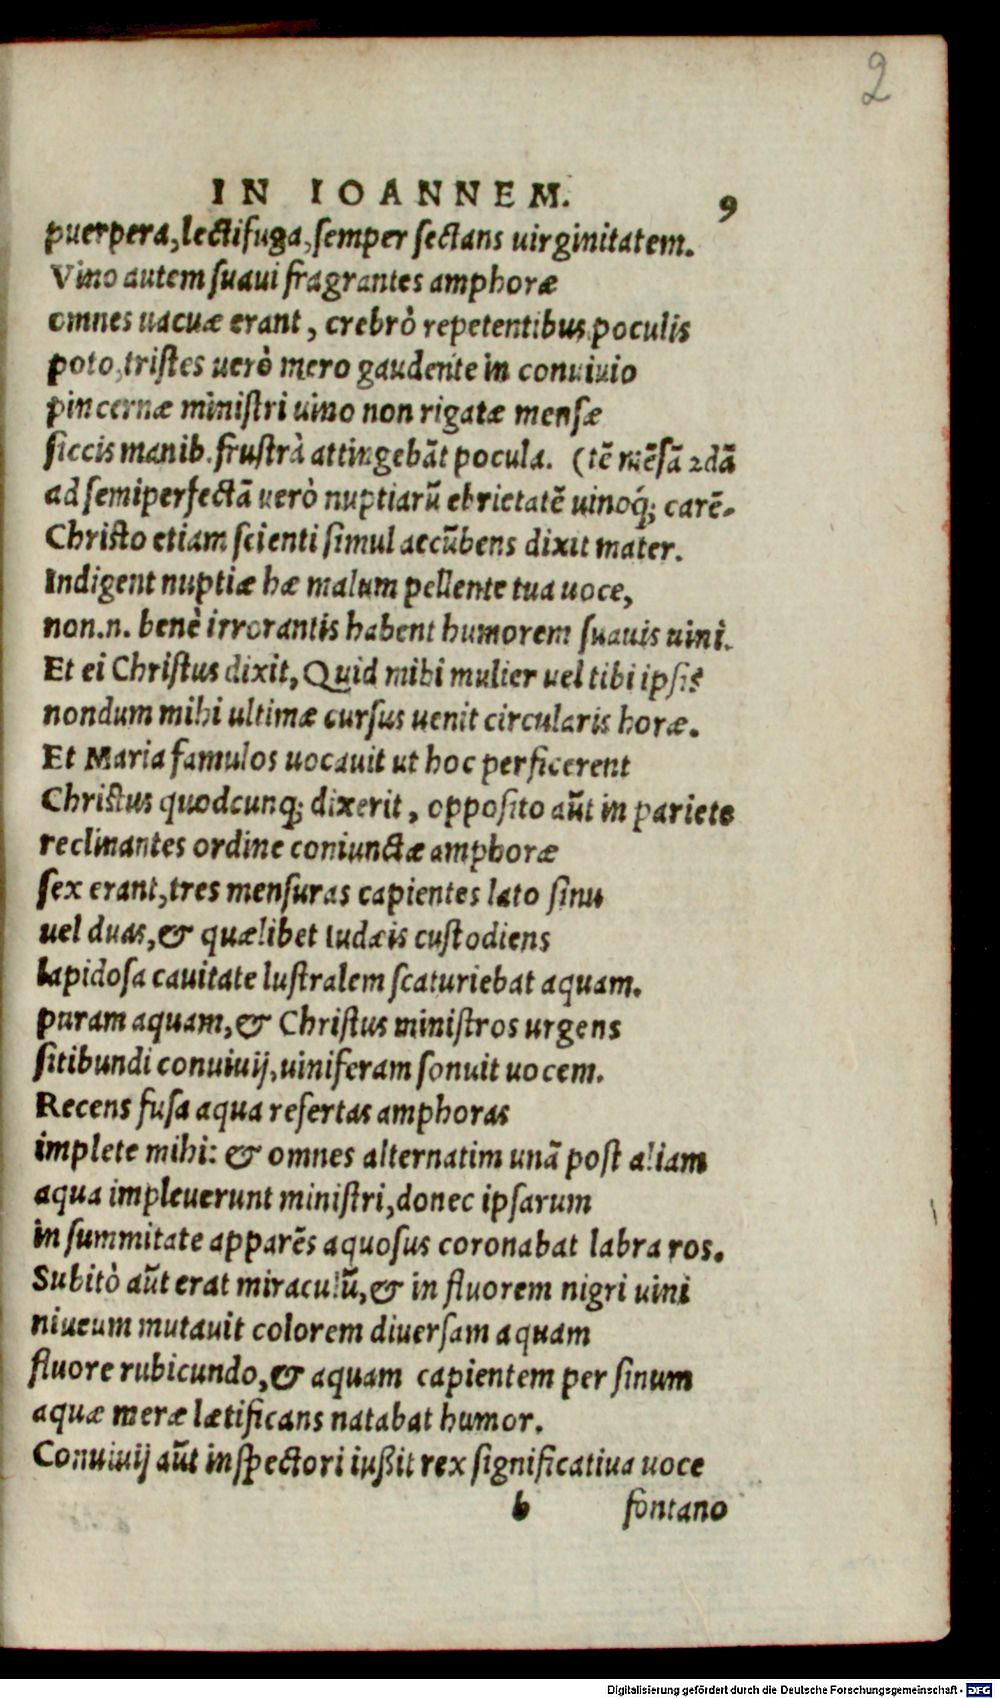 2
IN IOANNEM. 9
puerpera, lectifuga, semper sectans uirginitatem.
Vino autem suaui fragrantes amphoræ
omnes uacuæ erant, crebrò repetentibus poculis
poto, tristes uerò mero gaudente in conuiuio
pincernæ ministri uino non rigatæ mensæ
siccis manib. frustrà attingebāt pocula. (tē mēsā ꝛdā
ad semiperfectā uerò nuptiarū ebrietatē uinoq́; carē-
Christo etiam scienti simul accūbens dixit mater.
Indigent nuptiæ hæ malum pellente tua uoce,
non.n. benè irrorantis habent humorem suauis uini.
Et ei Christus dixit, Quid mihi mulier uel tibi ipsi?
nondum mihi ultimæ cursus uenit circularis horæ.
Et Maria famulos uocauit ut hoc perficerent
Christus quodcunq; dixerit, opposito aūt in pariete
reclinantes ordine coniunctæ amphoræ
sex erant, tres mensuras capientes lato sinu
uel duas, & quælibet Iudæis custodiens
lapidosa cauitate lustralem scaturiebat aquam.
puram aquam, & Christus ministros urgens
sitibundi conuiuij, uiniferam sonuit uocem.
Recens fusa aqua refertas amphoras
implete mihi: & omnes alternatim unā post aliam
aqua impleuerunt ministri, donec ipsarum
in summitate apparēs aquosus coronabat labra ros.
Subitò aūt erat miraculū, & in fluorem nigri uini
niueum mutauit colorem diuersam aquam
fluore rubicundo, & aquam capientem per sinum
aquæ meræ lætificans natabat humor.
Conuiuij aūt inspectori iußit rex significatiua uoce
b fontano
Digitalisierung gefördert durch die Deutsche Forschungsgemeinschaft - DFG